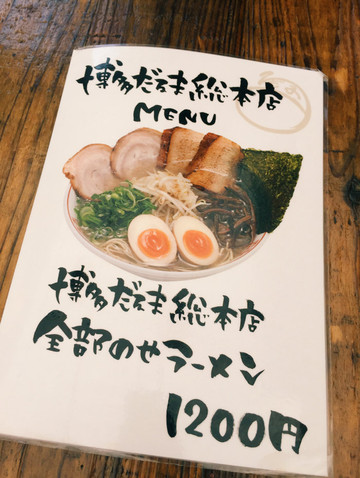 博多だるま総本店
MENU
博多だるま総本店
全部のせラーメン
1200円